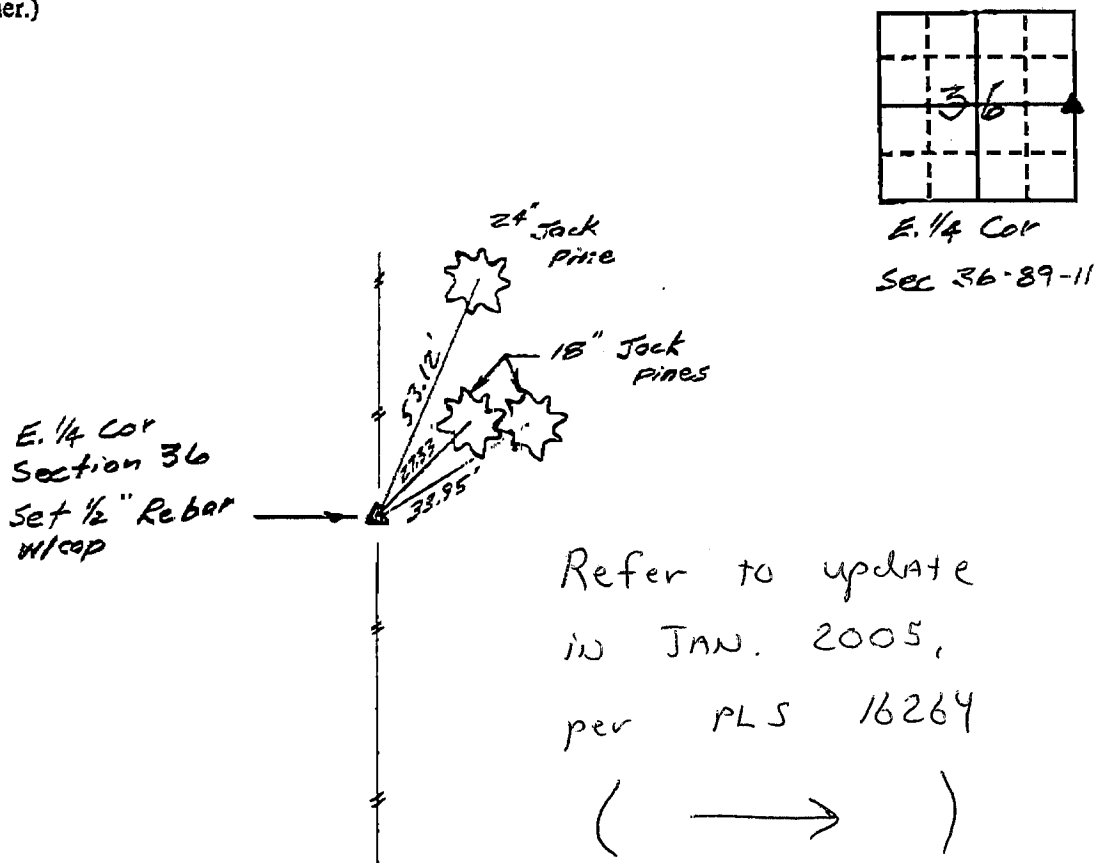 er.)
36
E. 1/4 Cor
Sec 36-89-11
24" Jack
Pine
18" Jack
Pines
53.12'
27.33'
33.95'
E. 1/4 Cor
Section 36
Set 1/2" Rebar
w/cap
Refer to update
in JAN. 2005,
per PLS 16264
( → )